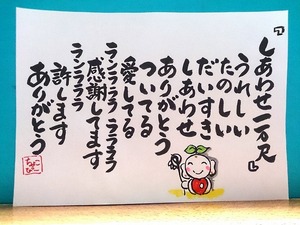 『しあわせ一万尺』
うれしい
たのしい
だいすき
しあわせ
ありがとう
ついてる
愛してる
ランララララララ
感謝してます
ランラララ
許します
ありがとう